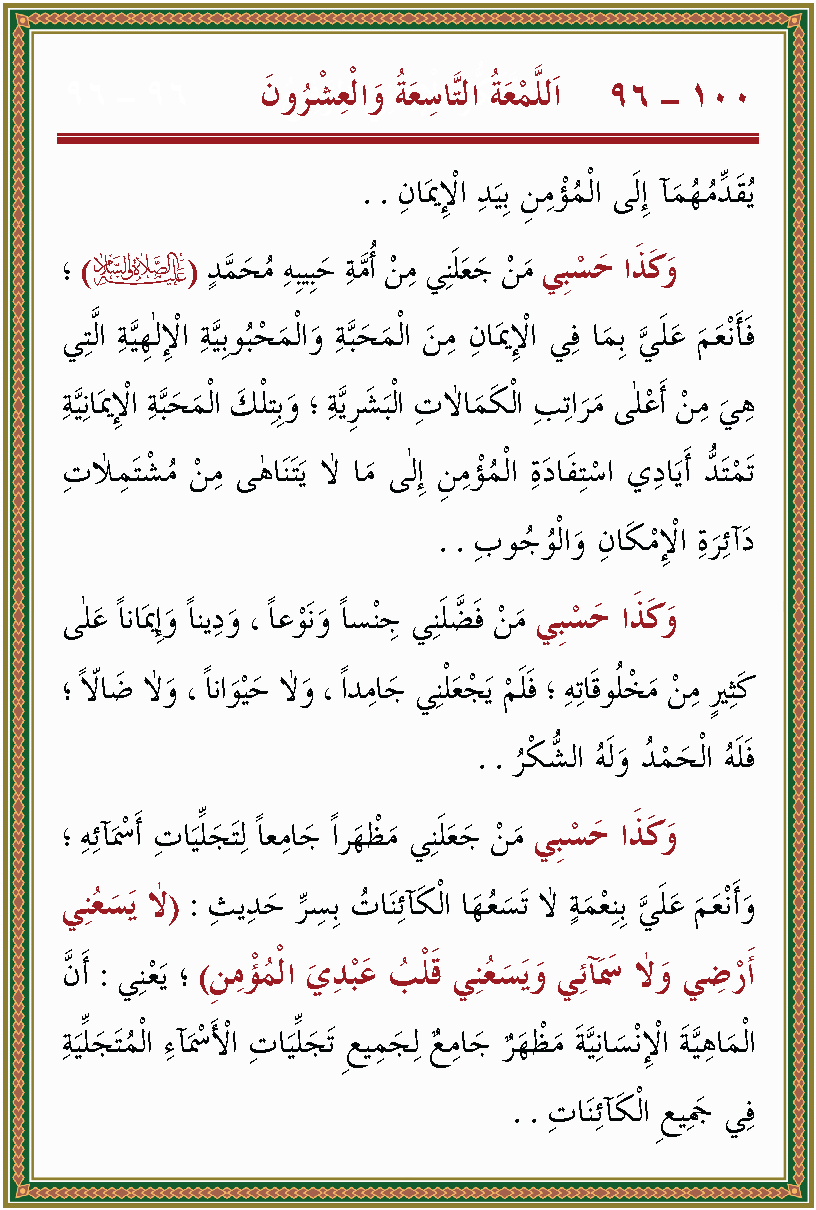 ١٠٠ - ٩٦ اَللَّمْعَةُ التَّاسِعَةُ وَالْعِشْرُونَ
يُقَدِّمُهُمَآ إِلَى الْمُؤْمِنِ بِيَدِ الْإِيمَانِ . .
وَكَذَا حَسْبِي مَنْ جَعَلَنِي مِنْ أُمَّةِ حَبِيبِهِ مُحَمَّدٍ (عَلَيْهِ الصَّلَاةُ وَالسَّلَامُ) ؛
فَأَنْعَمَ عَلَيَّ بِمَا فِي الْإِيمَانِ مِنَ الْمَحَبَّةِ وَالْمَحْبُوبِيَّةِ الْإِلٰهِيَّةِ الَّتِي
هِيَ مِنْ أَعْلٰى مَرَاتِبِ الْكَمَالَاتِ الْبَشَرِيَّةِ ؛ وَبِتِلْكَ الْمَحَبَّةِ الْإِيمَانِيَّةِ
تَمْتَدُّ أَيَادِي اسْتِفَادَةِ الْمُؤْمِنِ إِلٰى مَا لَا يَتَنَاهٰى مِنْ مُشْتَمِلَاتِ
دَآئِرَةِ الْإِمْكَانِ وَالْوُجُوبِ . .
وَكَذَا حَسْبِي مَنْ فَضَّلَنِي جِنْساً وَنَوْعاً ، وَدِيناً وَإِيمَاناً عَلٰى
كَثِيرٍ مِنْ مَخْلُوقَاتِهِ ؛ فَلَمْ يَجْعَلْنِي جَامِداً ، وَلَا حَيْوَاناً ، وَلَا ضَالّاً ؛
فَلَهُ الْحَمْدُ وَلَهُ الشُّكْرُ . .
وَكَذَا حَسْبِي مَنْ جَعَلَنِي مَظْهَراً جَامِعاً لِتَجَلِّيَاتِ أَسْمَآئِهِ ؛
وَأَنْعَمَ عَلَيَّ بِنِعْمَةٍ لَا تَسَعُهَا الْكَآئِنَاتُ بِسِرِّ حَدِيثِ : (لَا يَسَعُنِي
أَرْضِي وَلَا سَمَآئِي وَيَسَعُنِي قَلْبُ عَبْدِيَ الْمُؤْمِنِ) ؛ يَعْنِي : أَنَّ
الْمَاهِيَّةَ الْإِنْسَانِيَّةَ مَظْهَرٌ جَامِعٌ لِجَمِيعِ تَجَلِّيَاتِ الْأَسْمَآءِ الْمُتَجَلِّيَةِ
فِي جَمِيعِ الْكَآئِنَاتِ . .